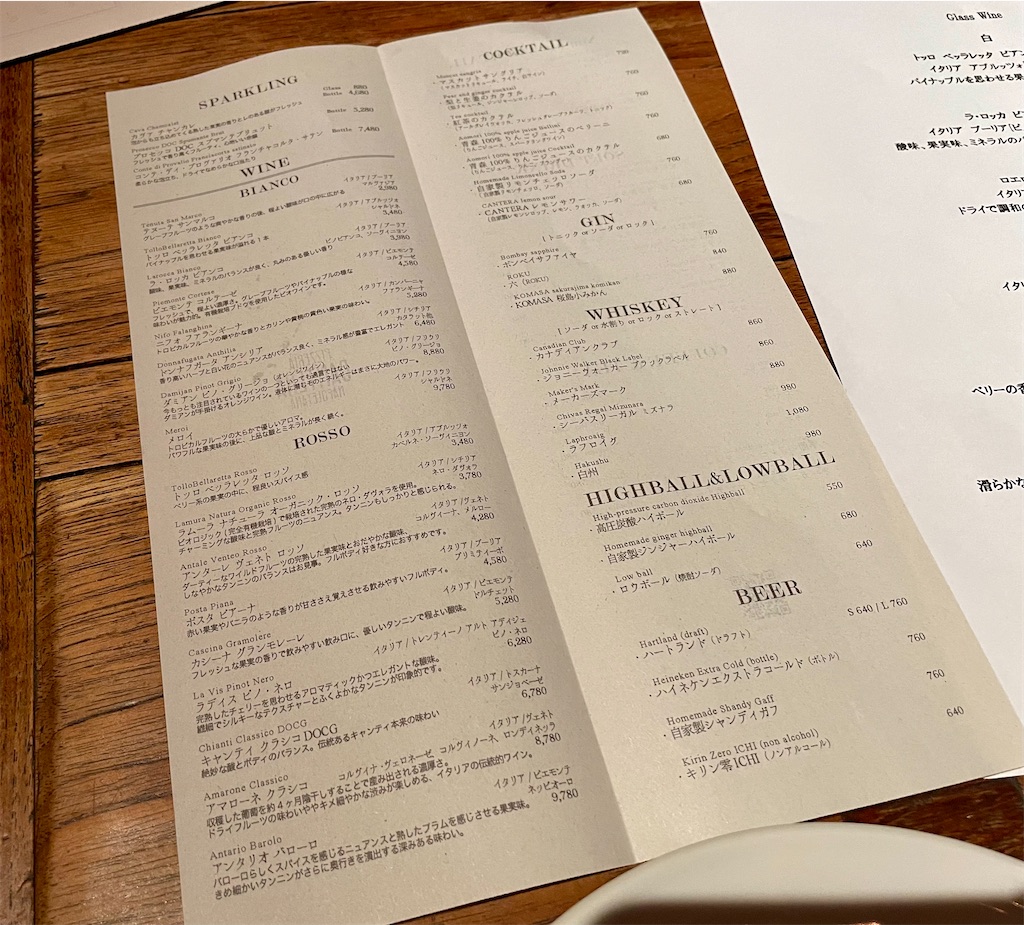 SPARKLING
Glass 880
Bottle 4,080
Cava Chemistel
Bottle 5,280
Prosecco DOC Spumante Brut
プロセッコ DOC スプマンテブリュット
フレッシュで香り高くフルーティ。心地いい泡感
Bottle 7,480
柔らかな泡立ち、ドライでなめらかな口当たり
WINE
BIANCO
イタリア / プーリア
マルヴァジア
2,980
Tenuta San Marco
テヌータ サンマルコ
グレープフルーツのような爽やかな香りの後、程よい酸味が口の中に広がる
イタリア / アブルッツォ
シャルドネ
3,480
TolloBellaretta Bianco
トッロ ベッラレッタ ビアンコ
パイナップルを思わせる果実味が溢れる1本
イタリア / プーリア
ピノビアンコ、ソーヴィニヨン
3,980
Larocca Bianco
ラ・ロッカ ビアンコ
酸味、果実味、ミネラルのバランスが良く、丸みのある優しい香り
イタリア / ピエモンテ
コルテーゼ
4,580
Piemonte Cortese
ピエモンテ コルテーゼ
フレッシュで、程よい濃厚さ。グレープフルーツやパイナップルの様な
味わいが魅力的。有機栽培ブドウを使用したビオワインです。
イタリア / カンパーニャ
ファランギーナ
5,280
Nifo Falanghina
ニフォ ファランギーナ
トロピカルフルーツの華やかな香りとカリンや黄桃の黄色い果実の味わい。
イタリア / シチリア
カタラット他
6,480
Donnafugata Anthilia
ドンナフガータ アンシリア
香り高いハーブと白い花のニュアンスがバランス良く、ミネラル感が豊富でエレガント
イタリア / フリウリ
ピノ・グリージョ
8,880
Damijan Pinot Grigio
ダミアン ピノ・グリージョ (オレンジワイン)
今もっとも注目されているワインの一つといっても過言ではない
ダミアンが手掛けるオレンジワイン。液体に潜むそのエネルギーはまさに大地のパワー。
イタリア / フリウリ
シャルドネ
9,780
Meroi
メロイ
トロピカルフルーツの大らかで優しいアロマ。
パワフルな果実味の後に、上品な酸とミネラルが長く続く。
ROSSO
イタリア / アブルッツォ
カベルネ・ソーヴィニヨン
3,480
TolloBellaretta Rosso
トッロ ベッラレッタ ロッソ
ベリー系の果実の中に、程良いスパイス感
イタリア / シチリア
ネロ・ダヴォラ
3,780
Lamura Natura Organic Rosso
ラムーラ ナチューラ オーガニック・ロッソ
ビオロジック(完全有機栽培)で栽培された完熟のネロ・ダヴォラを使用。
チャーミングな酸味と完熟フルーツのニュアンス。タンニンもしっかりと感じられる。
イタリア / ヴェネト
コルヴィーナ、メルロー
4,280
Antale Venteo Rosso
アンターレ ヴェネト ロッソ
ダーティーなワイルドフルーツの完熟した果実味とおだやかな酸味、
しなやかなタンニンのバランスはお見事。フルボディ好きな方におすすめです。
イタリア / プーリア
プリミティーボ
4,580
Posta Piana
ポスタ ピアーナ
赤い果実やバニラのような香りが甘ささえ覚えさせる飲みやすいフルボディ。
イタリア / ピエモンテ
ドルチェット
5,280
Cascina Gramolere
カシーナ グランモレーレ
フレッシュな果実の香りで飲みやすい飲み口に、優しいタンニンで程よい酸味。
イタリア / トレンティーノ アルト アディジェ
ピノ・ネロ
6,280
La Vis Pinot Nero
ラヴィス ピノ・ネロ
完熟したチェリーを思わせるアロマティックかつエレガントな酸味。
繊細でシルキーなテクスチャーとふくよかなタンニンが印象的です。
イタリア / トスカーナ
サンジョベーゼ
6,780
Chianti Classico DOCG
キャンティ クラシコ DOCG
絶妙な酸とボディのバランス。伝統あるキャンティ本来の味わい
イタリア / ヴェネト
コルヴィナ・ヴェロネーゼ コルヴィノーネ、ロンディネッラ
8,780
Amarone Classico
アマローネ クラシコ
収穫した葡萄を約4ヶ月陰干しすることで産み出される濃厚さ。
ドライフルーツの味わいややキメ細やかな渋みが楽しめる、イタリアの伝統的ワイン。
イタリア / ピエモンテ
ネッビオーロ
9,780
Antario Barolo
アンタリオ バローロ
バローロらしくスパイスを感じるニュアンスと熟したプラムを感じさせる果実味。
きめ細かいタンニンがさらに奥行きを演出する深みある味わい。
COCKTAIL
・マスカットサングリア 790
Pear and ginger cocktail
・梨と生姜のカクテル 760
Tea cocktail
・紅茶のカクテル 760
(アールグレイウォッカ、フレッシュグレープフルーツ、トニック)
Aomori 100% apple juice Bellini
・青森100%りんごジュースのベリーニ 760
(りんごジュース、スパークリングワイン)
Aomori 100% apple juice Cocktail
・青森100%りんごジュースのカクテル 680
Homemade Lomoncello Soda
・自家製リモンチェッロソーダ 760
(自家製リモンチェッロ、ソーダ)
CANTERA lemon sour
・CANTERA レモンサワー 680
(自家製レモンシロップ、レモン、ウォッカ、ソーダ)
GIN
[ トニック or ソーダ or ロック ]
Bombay sapphire
・ボンベイサファイヤ 760
ROKU
・六 (ROKU) 840
KOMASA sakurajima komikan
・KOMASA 桜島小みかん 880
WHISKEY
[ ソーダ or 水割り or ロック or ストレート ]
Canadian Club
・カナディアンクラブ 860
Johnnie Walker Black Label
・ジョニーウォーカー ブラックラベル 860
Maker's Mark
・メーカーズマーク 880
Chivas Regal Mizunara
・シーバスリーガル ミズナラ 980
Laphroaig
・ラフロイグ 1,080
Hakushu
・白州 980
HIGHBALL&LOWBALL
High-pressure carbon dioxide Highball
・高圧炭酸ハイボール 550
Homemade ginger highball
・自家製ジンジャーハイボール 680
Low ball
・ロウボール (焼酎ソーダ) 640
BEER
Hartland (draft)
・ハートランド (ドラフト) S 640 / L 760
Heineken Extra Cold (bottle)
・ハイネケンエクストラコールド (ボトル) 760
Homemade Shandy Gaff
・自家製シャンディガフ 760
Kirin Zero ICHI (non alcohol)
・キリン零ICHI (ノンアルコール) 640
Glass Wine
白
トッロ ベッラレッタ ビアン
イタリア アブルッツォ
パイナップルを思わせる果
ラ・ロッカ ビ
イタリア プーリア/ピ
酸味、果実味、ミネラルのバ
ロエロ
イタリ
ドライで調和の
イタ
ベリーの香
滑らかな